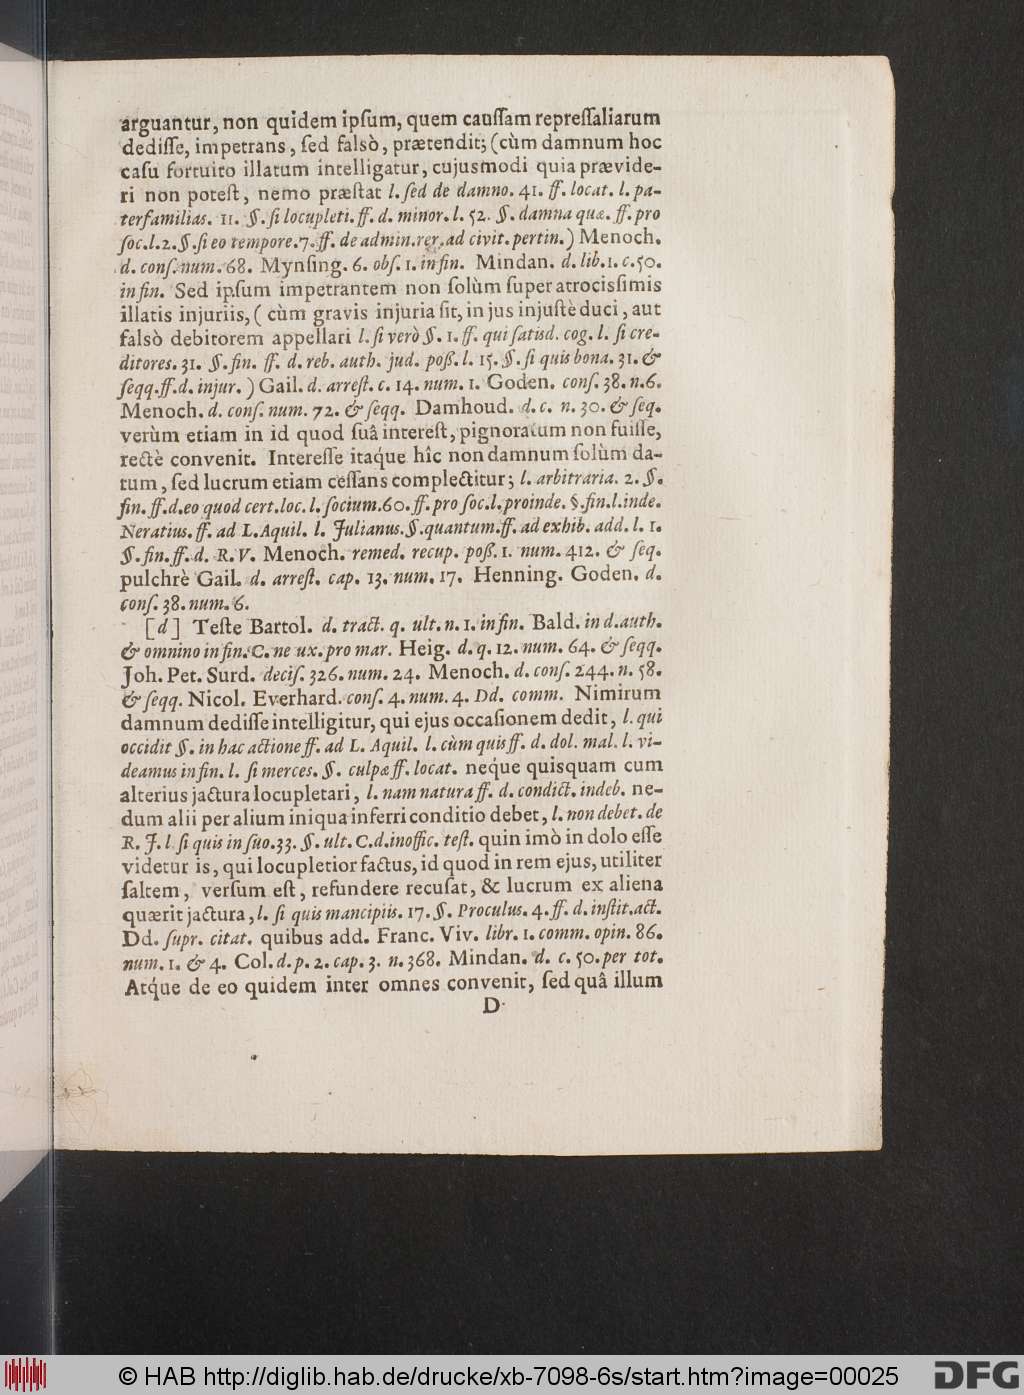 arguantur, non quidem ipſum, quem cauſſam repreſſaliarum
dediſſe, impetrans, ſed falsò, prætendit; (cùm damnum hoc
caſu fortuito illatum intelligatur, cujusmodi quia prævide-
ri non poteſt, nemo præſtat l. ſed de damno. 41. ff. locat. l. pa-
terfamilias. 11. §. ſi locupleti. ff. d. minor. l. 52. §. damna quæ. ff. pro
ſoc. l. 2. §. ſi eo tempore. 7. ff. de admin. rer. ad civit. pertin.) Menoch.
d. conſ. num. 68. Mynſing. 6. obſ. 1. in fin. Mindan. d. lib. 1. c. 50.
in fin. Sed ipſum impetrantem non ſolùm ſuper atrociſſimis
illatis injuriis, (cùm gravis injuria ſit, in jus injuſtè duci, aut
falsò debitorem appellari l. ſi verò §. 1. ff. qui ſatisd. cog. l. ſi cre-
ditores. 31. §. fin. ff. d. reb. auth. jud. poß. l. 15. §. ſi quis bona. 31. &
ſeqq. ff. d. injur.) Gail. d. arreſt. c. 14. num. 1. Goden. conſ. 38. n. 6.
Menoch. d. conſ. num. 72. & ſeqq. Damhoud. d. c. n. 30. & ſeq.
verùm etiam in id quod ſuâ intereſt, pignoratum non fuiſſe,
rectè convenit. Intereſſe itaq́ue hîc non damnum ſolùm da-
tum, ſed lucrum etiam ceſſans complectitur; l. arbitraria. 2. §.
fin. ff. d. eo quod cert. loc. l. ſocium. 60. ff. pro ſoc. l. proinde. §. fin. l. inde.
Neratius. ff. ad L. Aquil. l. Julianus. §. quantum. ff. ad exhib. add. l. 1.
§. fin. ff. d. R. V. Menoch. remed. recup. poß. 1. num. 412. & ſeq.
pulchrè Gail. d. arreſt. cap. 13. num. 17. Henning. Goden. d.
conſ. 38. num. 6.
[d] Teſte Bartol. d. tract. q. ult. n. 1. in fin. Bald. in d. auth.
& omnino in fin. C. ne ux. pro mar. Heig. d. q. 12. num. 64. & ſeqq.
Joh. Pet. Surd. deciſ. 326. num. 24. Menoch. d. conſ. 244. n. 58.
& ſeqq. Nicol. Everhard. conſ. 4. num. 4. Dd. comm. Nimirum
damnum dediſſe intelligitur, qui ejus occaſionem dedit, l. qui
occidit §. in hac actione ff. ad L. Aquil. l. cùm quis ff. d. dol. mal. l. vi-
deamus in fin. l. ſi merces. §. culpæ ff. locat. neq́ue quisquam cum
alterius jactura locupletari, l. nam natura ff. d. condict. indeb. ne-
dum alii per alium iniqua inferri conditio debet, l. non debet. de
R. J. l ſi quis in ſuo. 33. §. ult. C. d. inoffic. teſt. quin imò in dolo eſſe
videtur is, qui locupletior factus, id quod in rem ejus, utiliter
ſaltem, verſum eſt, refundere recuſat, & lucrum ex aliena
quærit jactura, l. ſi quis mancipiis. 17. §. Proculus. 4. ff. d. inſtit. act.
Dd. ſupr. citat. quibus add. Franc. Viv. libr. 1. comm. opin. 86.
num. 1. & 4. Col. d. p. 2. cap. 3. n. 368. Mindan. d. c. 50. per tot.
Atq́ue de eo quidem inter omnes convenit, ſed quâ illum
D
© HAB http://diglib.hab.de/drucke/xb-7098-6s/start.htm?image=00025
DFG